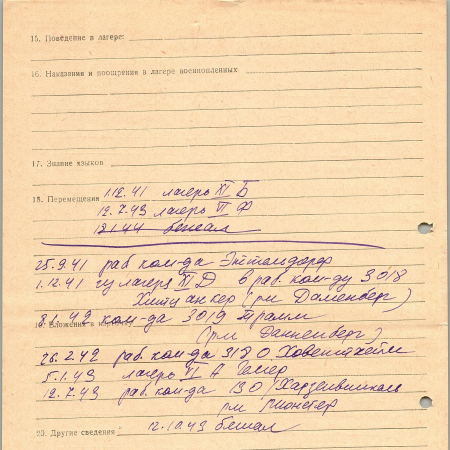 15. Поведение в лагере:
16. Наказания и поощрения в лагере военнопленных
17. Знание языков
18. Перемещения 1.12.41 лагерь XI Б
12.7.43 лагерь VI Ф
бежал
25.9.41 раб. ком-да Эттельдорф
1.12.41 из лагеря XI Д в раб. ком-ду 3018
(рм Даменберг)
ком-да 3019 Трамм
19. Вложения в
(рм Данненберг)
26.2.42 раб. ком-да 3180 Ховентхейм
5.1.43 лагерь VI А
12.7.43 раб. ком-да 130
рм Мюнстер
20. Другие сведения 12.10.43 бежал